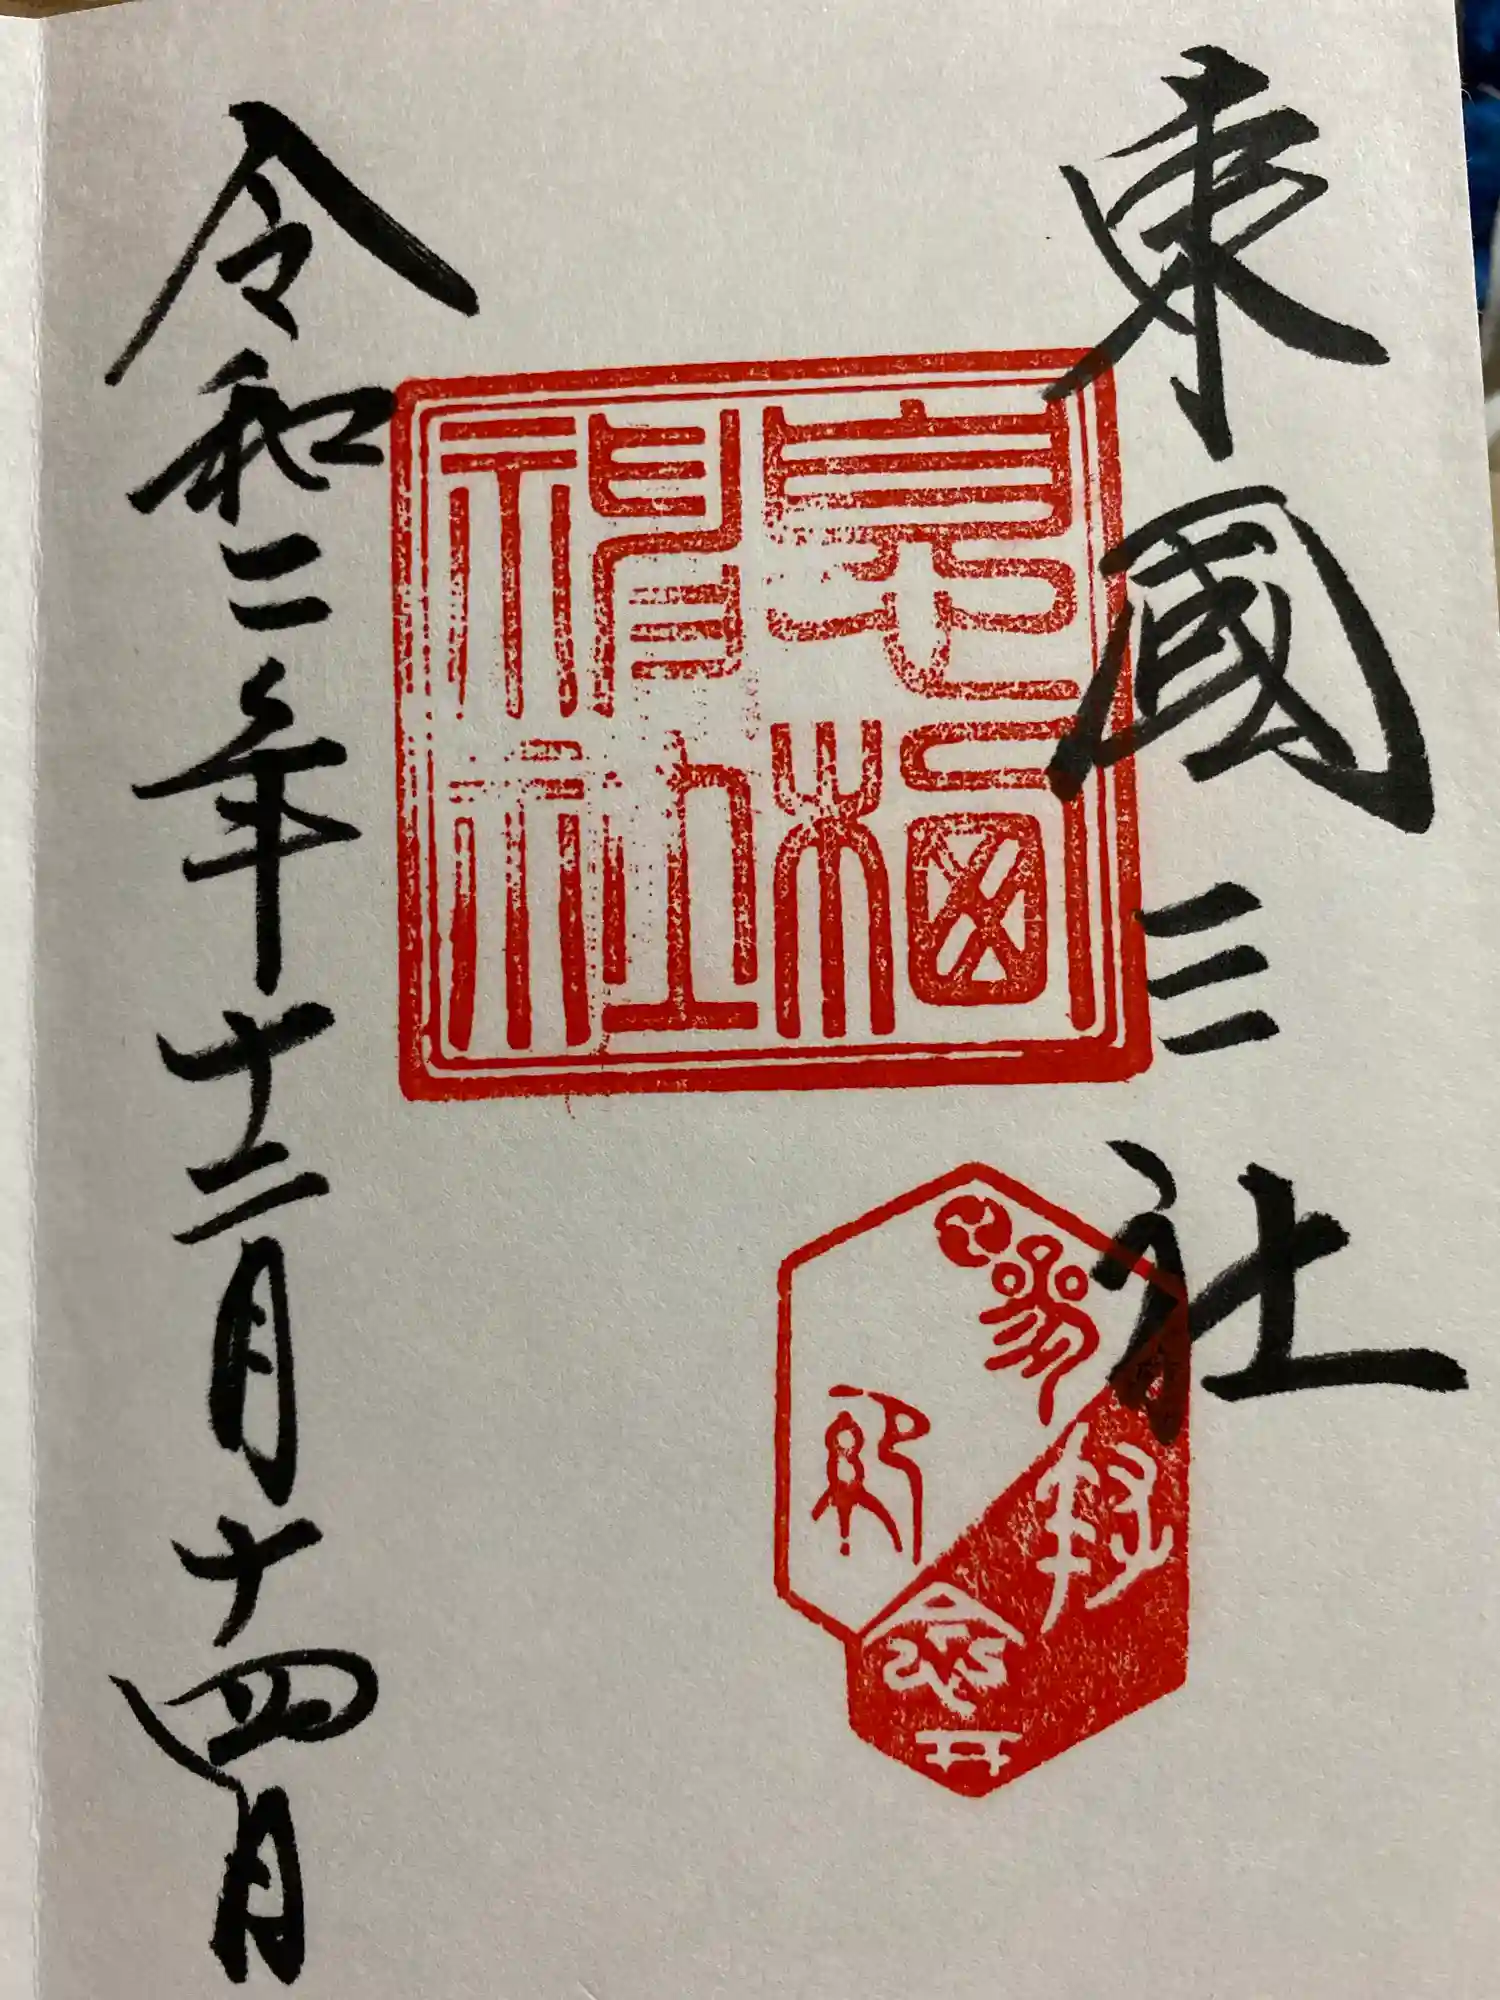 東國三社
息栖神社
令和二年十二月十四日